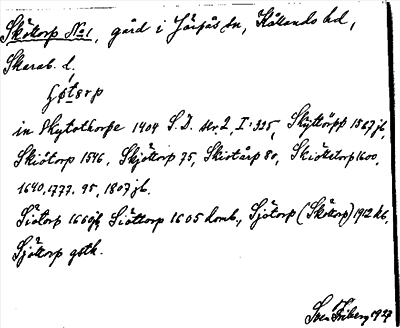 Sköttorp No1, gård i Järpås sn, Kållands hd,
Skarab. l.
in Skytothorpe 1404 S.D. nr 2, I:325, Skyttörpp 1567 jb,
Skiötorp 1546, Skjöttorp 75, Skiotårp 80, Skiöttstorp 1600,
1640, 1777. 95, 1807 jb.
Siötorp 1650 jb, Siöttorp 1605 domb, Sjötorp (Sköttorp) 1912 kb,
Sjöttorp gsth.
Sven Friberg 1927